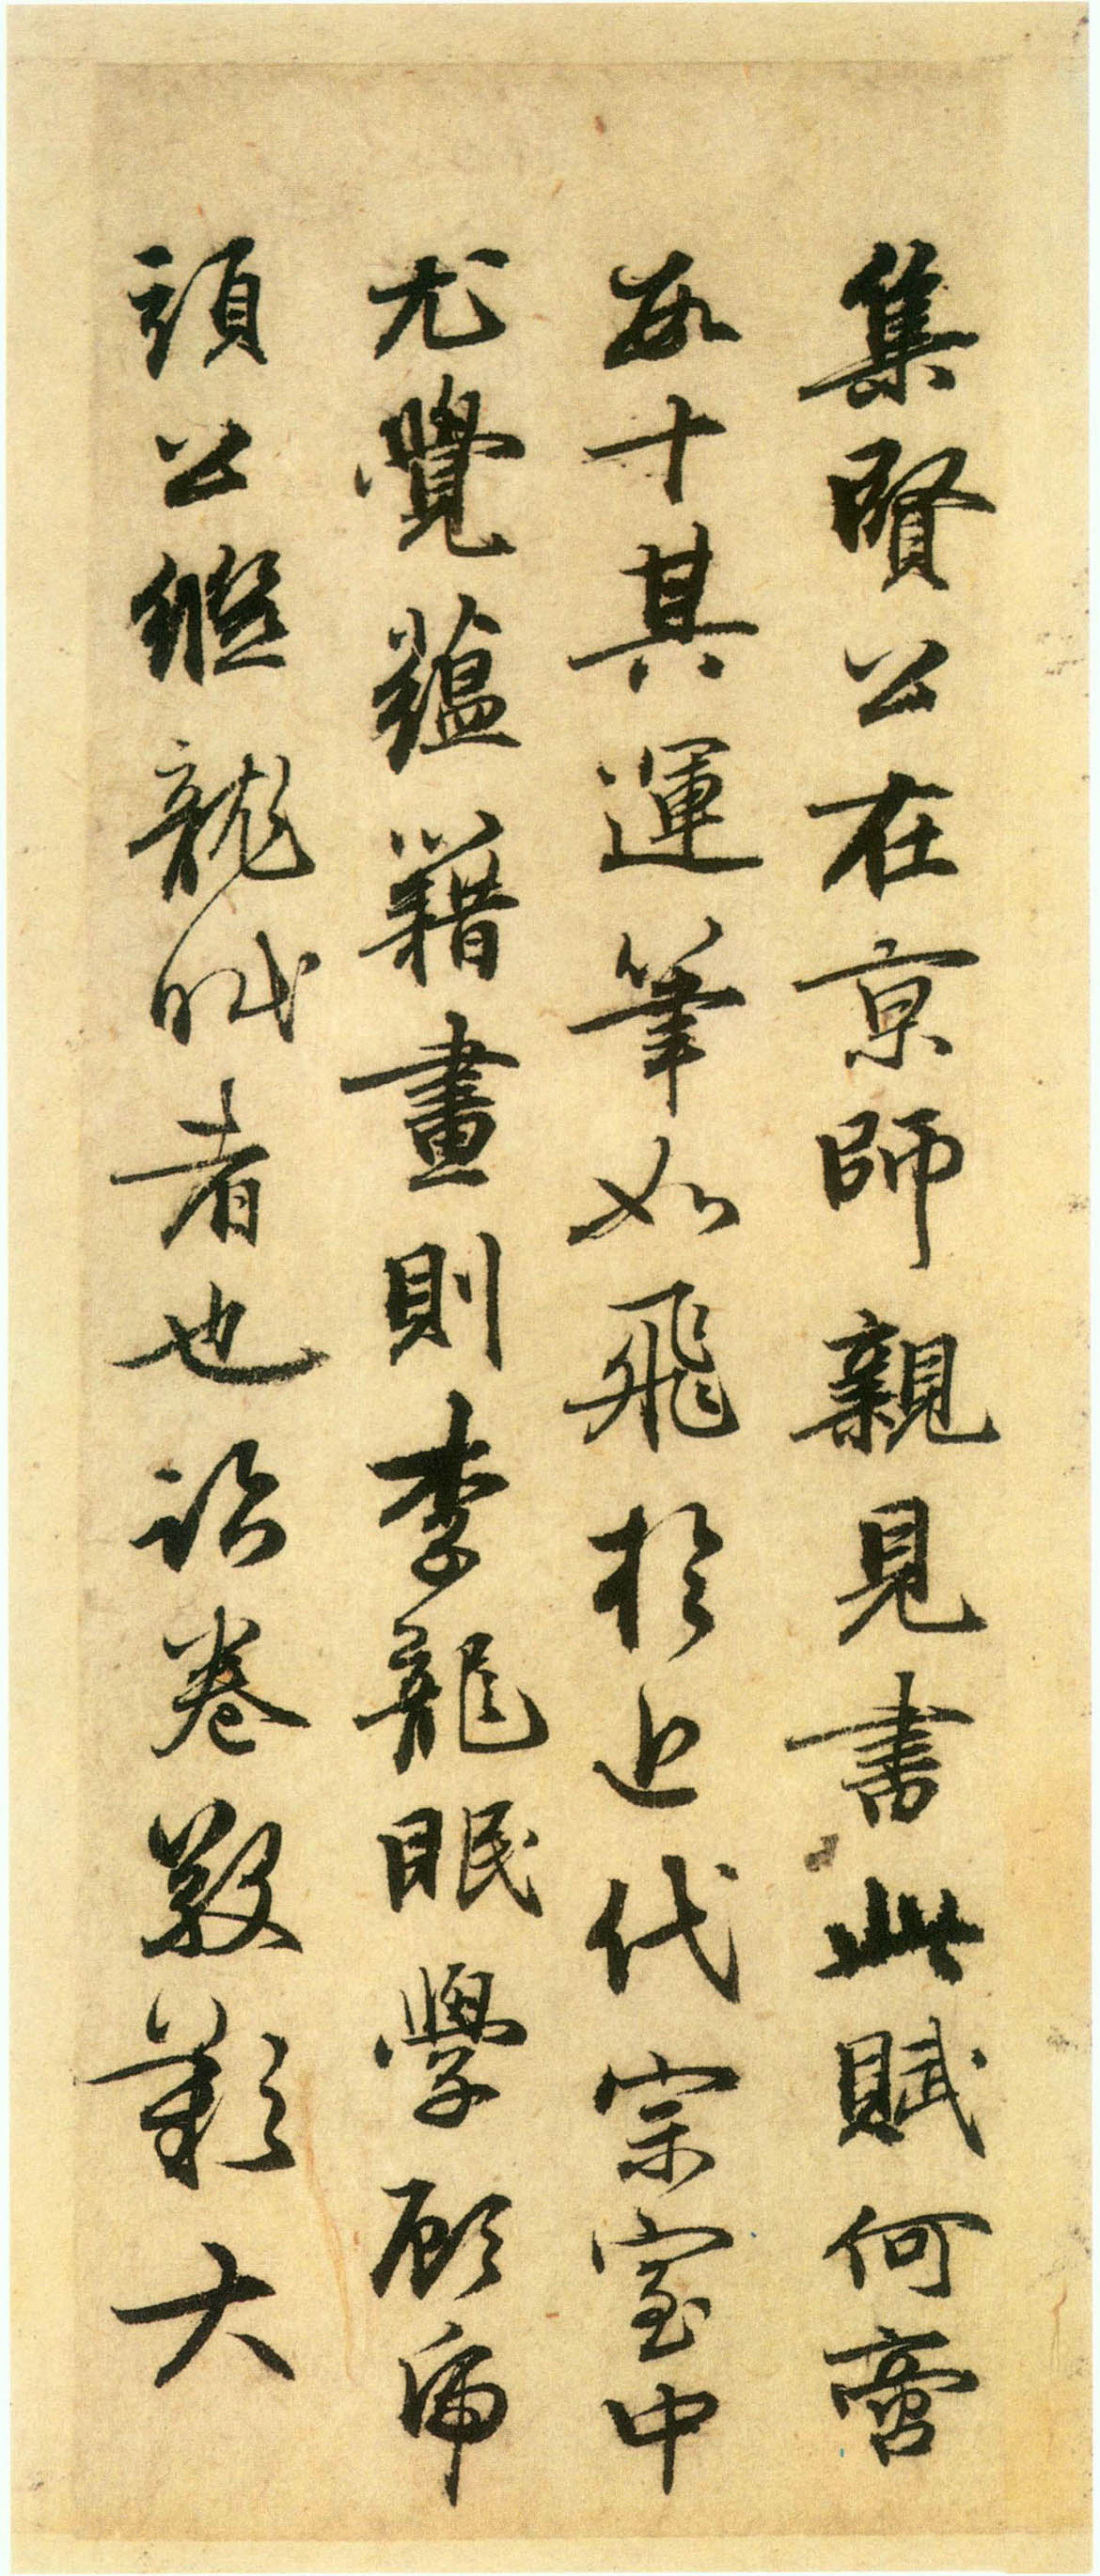 集賢公在京師親見書此賦何啻
數十其運筆如飛於近代宗室中
尤覺蘊籍畫則李龍眠學顧虎
頭公繼龍眠者也卷敬歎大